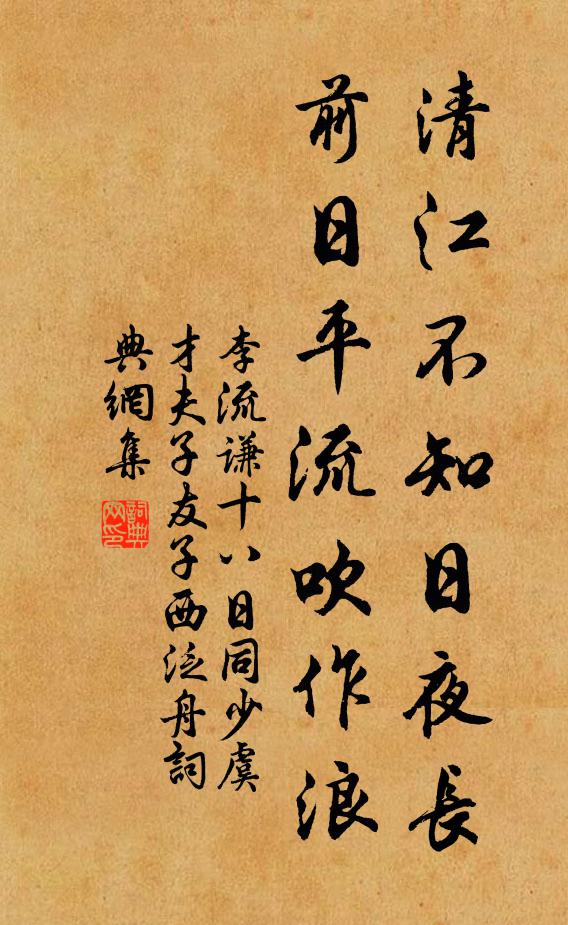 清江不知日夜長
前日平流吹作浪
李流謙十八日同少虞
才夫子友子西泛舟詞
典網集
詞典網印